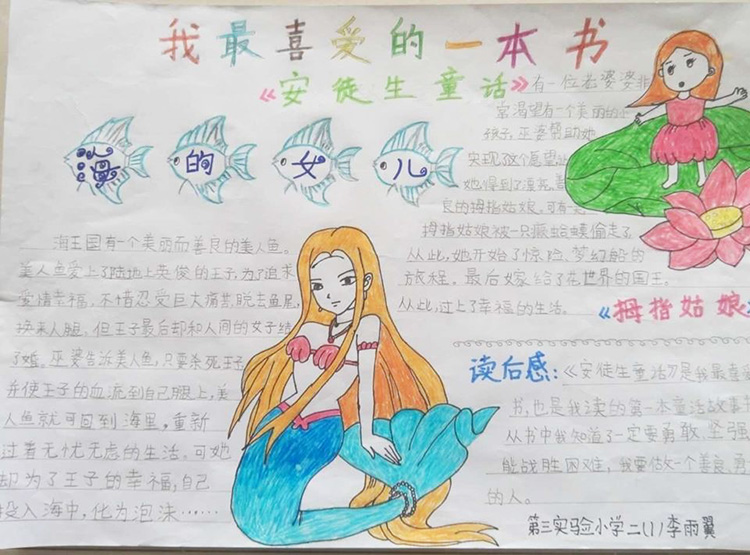 我最喜爱的一本书
《安徒生童话》
海的女儿
海王国有一个美丽而善良的美人鱼。
美人鱼爱上了陆地上英俊的王子,为了追求
爱情幸福,不惜忍受巨大痛苦,脱去鱼尾,
换来人腿,但王子最后却和人间的女子结
了婚。巫婆告诉美人鱼,只要杀死王子
并使王子的血流到自己腿上,美
人鱼就可回到海里,重新
过着无忧无虑的生活。可她
却为了王子的幸福,自己
投入海中,化为泡沫……
有一位老婆婆非
常渴望有一个美丽的
孩子,巫婆帮助她
实现了这个愿望
她得到了漂亮、
良的拇指姑娘。可有一
拇指姑娘被一只癞蛤蟆偷走了
从此,她开始了惊险、梦幻般的
旅程。最后嫁给了花世界的国王。
从此,过上了幸福的生活。
《拇指姑娘
读后感:《安徒生童话》是我最喜爱
书,也是我读的第一本童话故事
从书中我知道了一定要勇敢、坚强
能战胜困难,我要做一个善良、勇
的人。
第三实验小学二(1)李雨翼